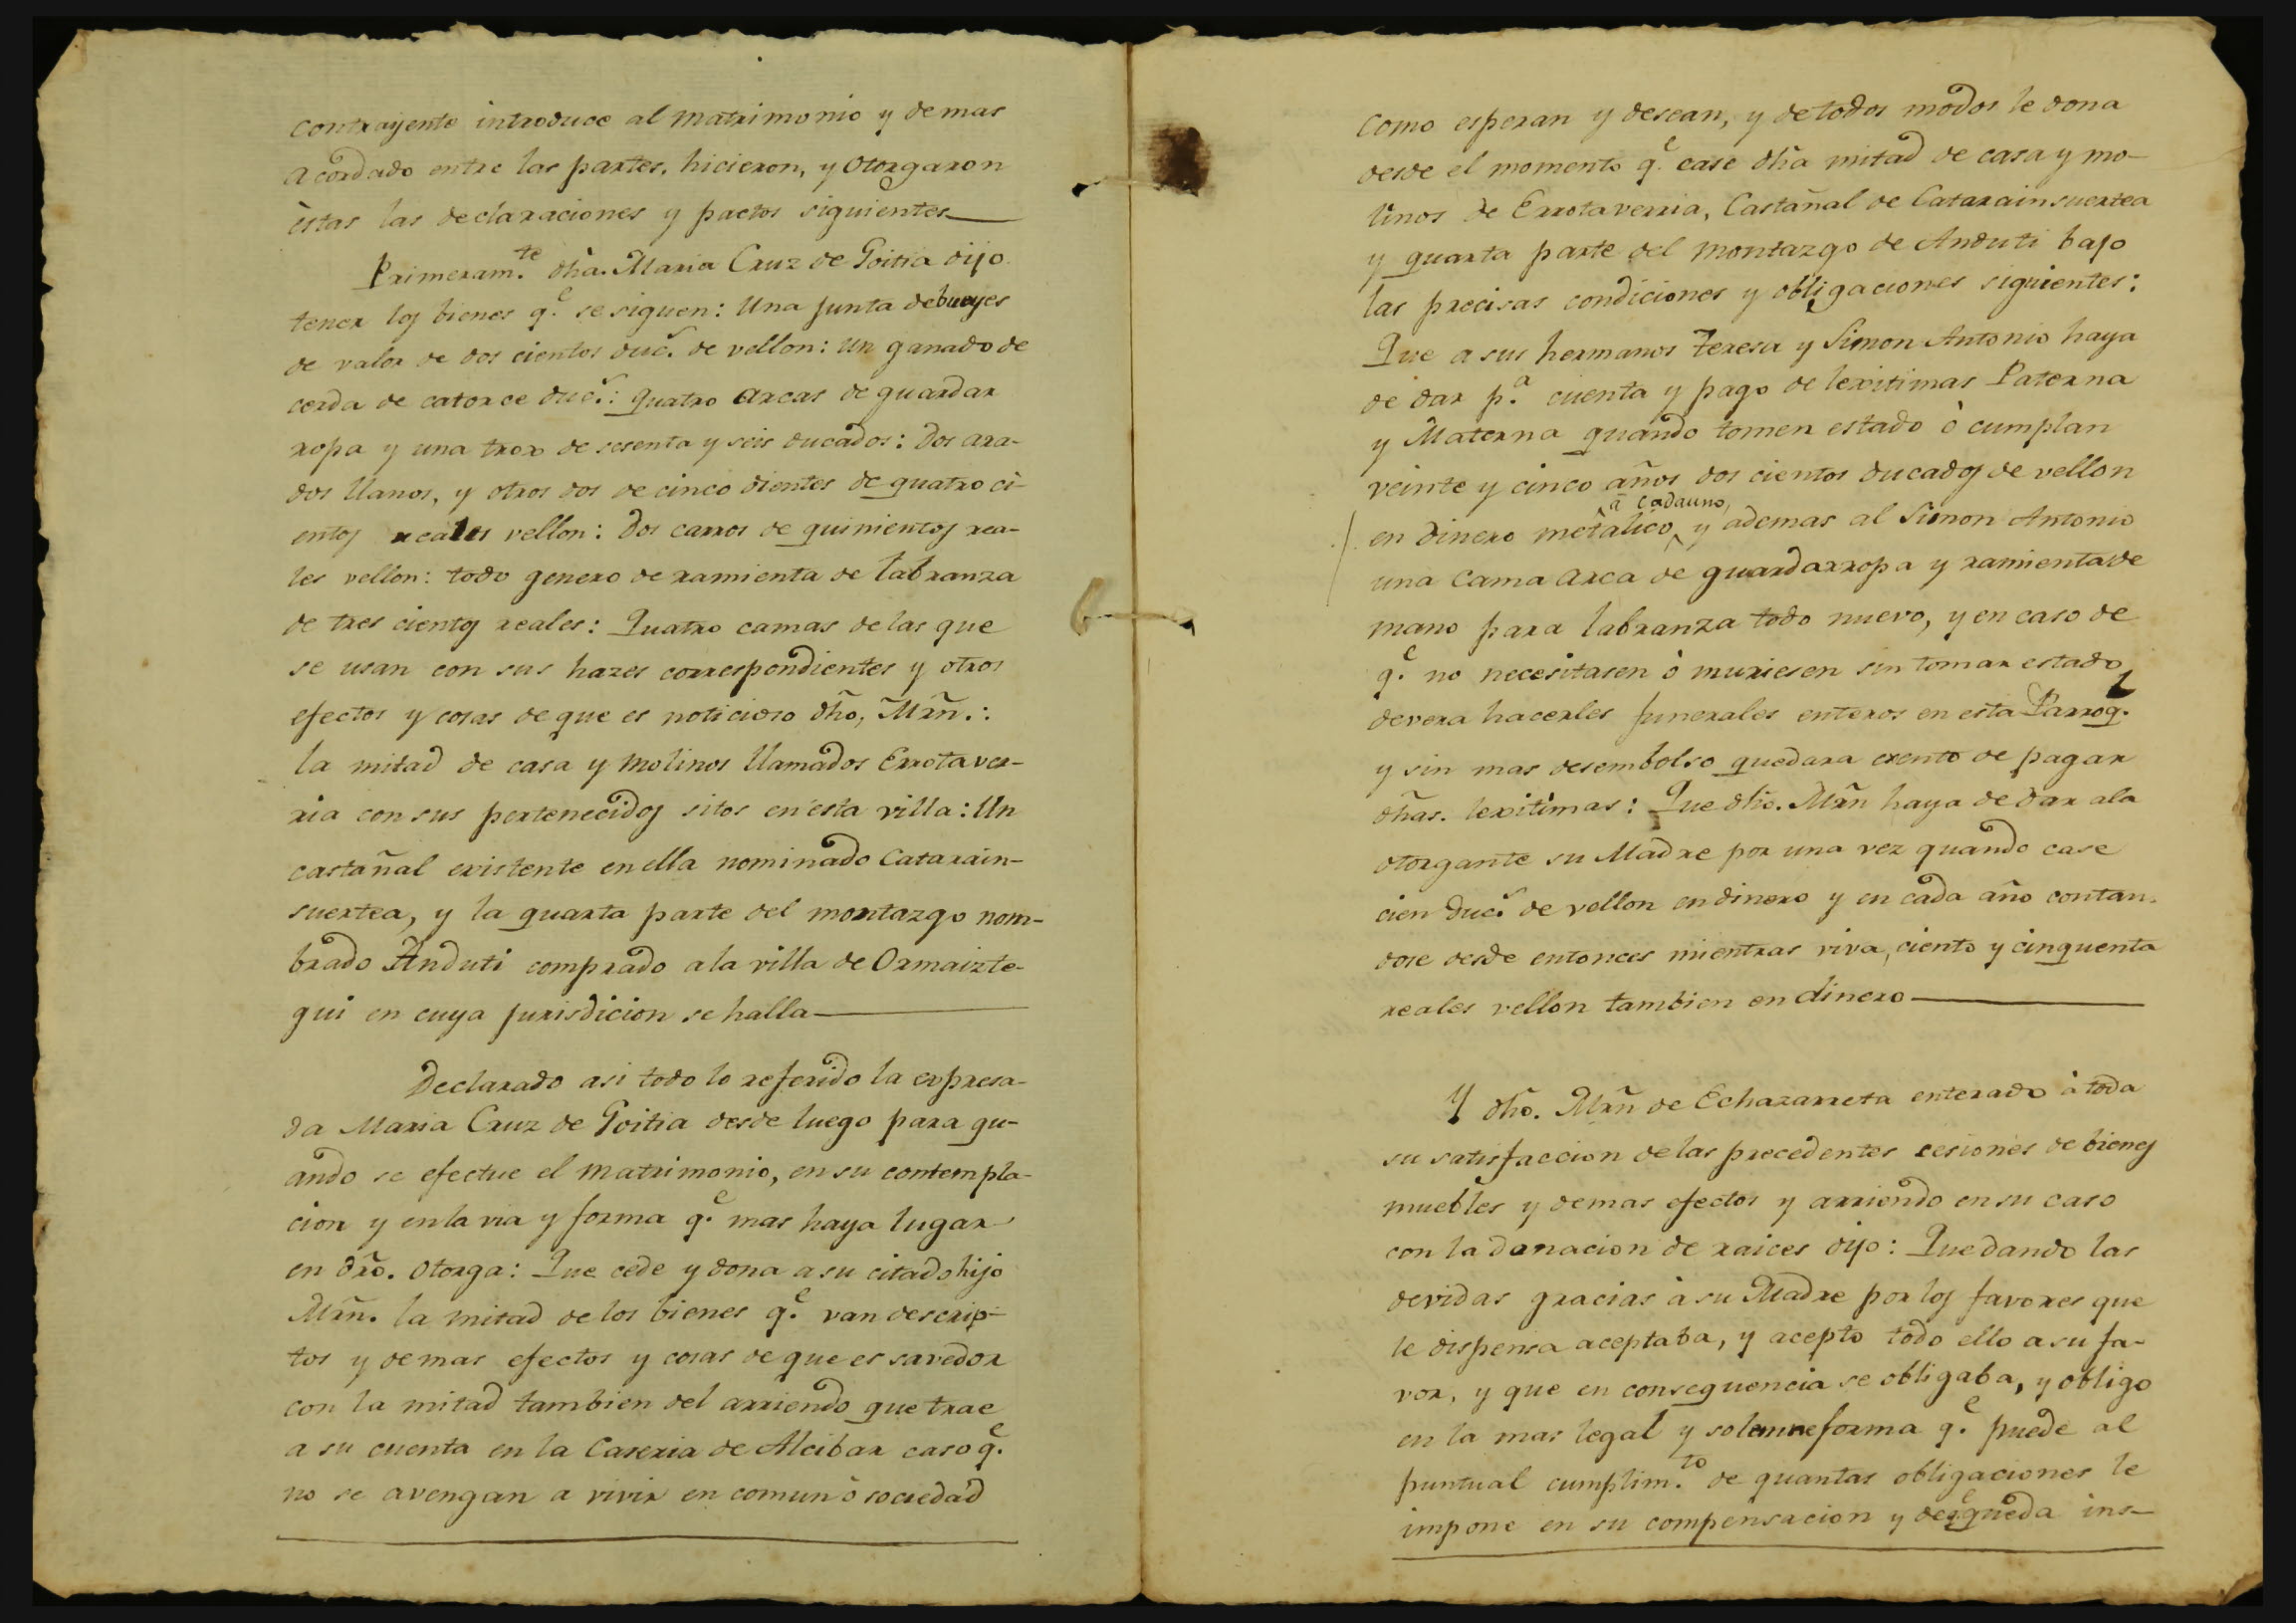 contrayente introduce al matrimonio y demas
acordado entre las partes, hicieron, y otorgaron
èstas las declaraciones y pactos siguientes
Primeram.te dha. Maria Cruz de Goitia dijo
tener los bienes q.e se siguen: Una junta de bueyes
de valor de dos cientos duc.s de vellon: un ganado de
cerda de catorce duc.s: quatro arcas de guardar
ropa y una trox de sesenta y seis ducados: dos ara-
dos llanos, y otros dos de cinco dientes de quatro ci-
entos reales vellon: dos carros de quinientos rea-
les vellon: todo genero de ramienta de labranza
de tres cientos reales: Quatro camas de las que
se usan con sus hazes correspondientes y otros
efectos y cosas de que es noticioso dho, Mrñ.:
la mitad de casa y molinos llamados Errotaver-
ria con sus pertenecidos sitos en esta villa: Un
castañal existente en ella nominado Catarain-
suertea, y la quarta parte del montazgo nom-
brado Anduti comprado a la villa de Ormaizte-
gui en cuya jurisdicion se halla
Declarado asi todo lo referido la expresa-
da Maria Cruz de Goitia desde luego para qu-
ando se efectue el matrimonio, en su contempla-
cion y en la via y forma q.e mas haya lugar
en dro. otorga: Que cede y dona a su citado hijo
Mrñ. la mitad de los bienes q.e van descrip-
tos y demas efectos y cosas de que es savedor
con la mitad tambien del arriendo que trae
a su cuenta en la Caseria de Alcibar caso q.e
no se avengan a vivir en comun ò sociedad
como esperan y desean, y de todos modos le dona
desde el momento q.e case dha mitad de casa y mo-
linos de Errotaverria, Castañal de Catarainsuertea
y quarta parte del montazgo de Anduti bajo
las precisas condiciones y obligaciones siguientes:
Que a sus hermanos Teresa y Simon Antonio haya
de dar p.a cuenta y pago de lexitimas Paterna
y Materna quando tomen estado ò cumplan
veinte y cinco años dos cientos ducados de vellon
à cada uno,
en dinero metalico, y ademas al Simon Antonio
una cama arca de guardarropa y ramienta de
mano para labranza todo nuevo, y en caso de
q.e no necesitasen ò muriesen sin tomar estado
devera hacerles funerales enteros en esta Parroq.
y sin mas desembolso quedara exento de pagar
dhas. lexitimas: Que dho. Mrñ haya de dar a la
otorgante su Madre por una vez quando case
cien duc.s de vellon en dinero y en cada año contan-
dose desde entonces mientras viva, ciento y cinquenta
reales vellon tambien en dinero
Y dho. Mrñ de Echazarreta enterado à toda
su satisfaccion de las precedentes cesiones de bienes
muebles y demas efectos y arriendo en su caso
con la donacion de raices dijo: Que dando las
devidas gracias à su Madre por los favores que
le dispensa aceptaba, y acepto todo ello a su fa-
vor, y que en consequencia se obligaba, y obligo
en la mas legal y solemne forma q.e puede al
puntual cumplim.to de quantas obligaciones le
impone en su compensacion y de q.e queda ins-